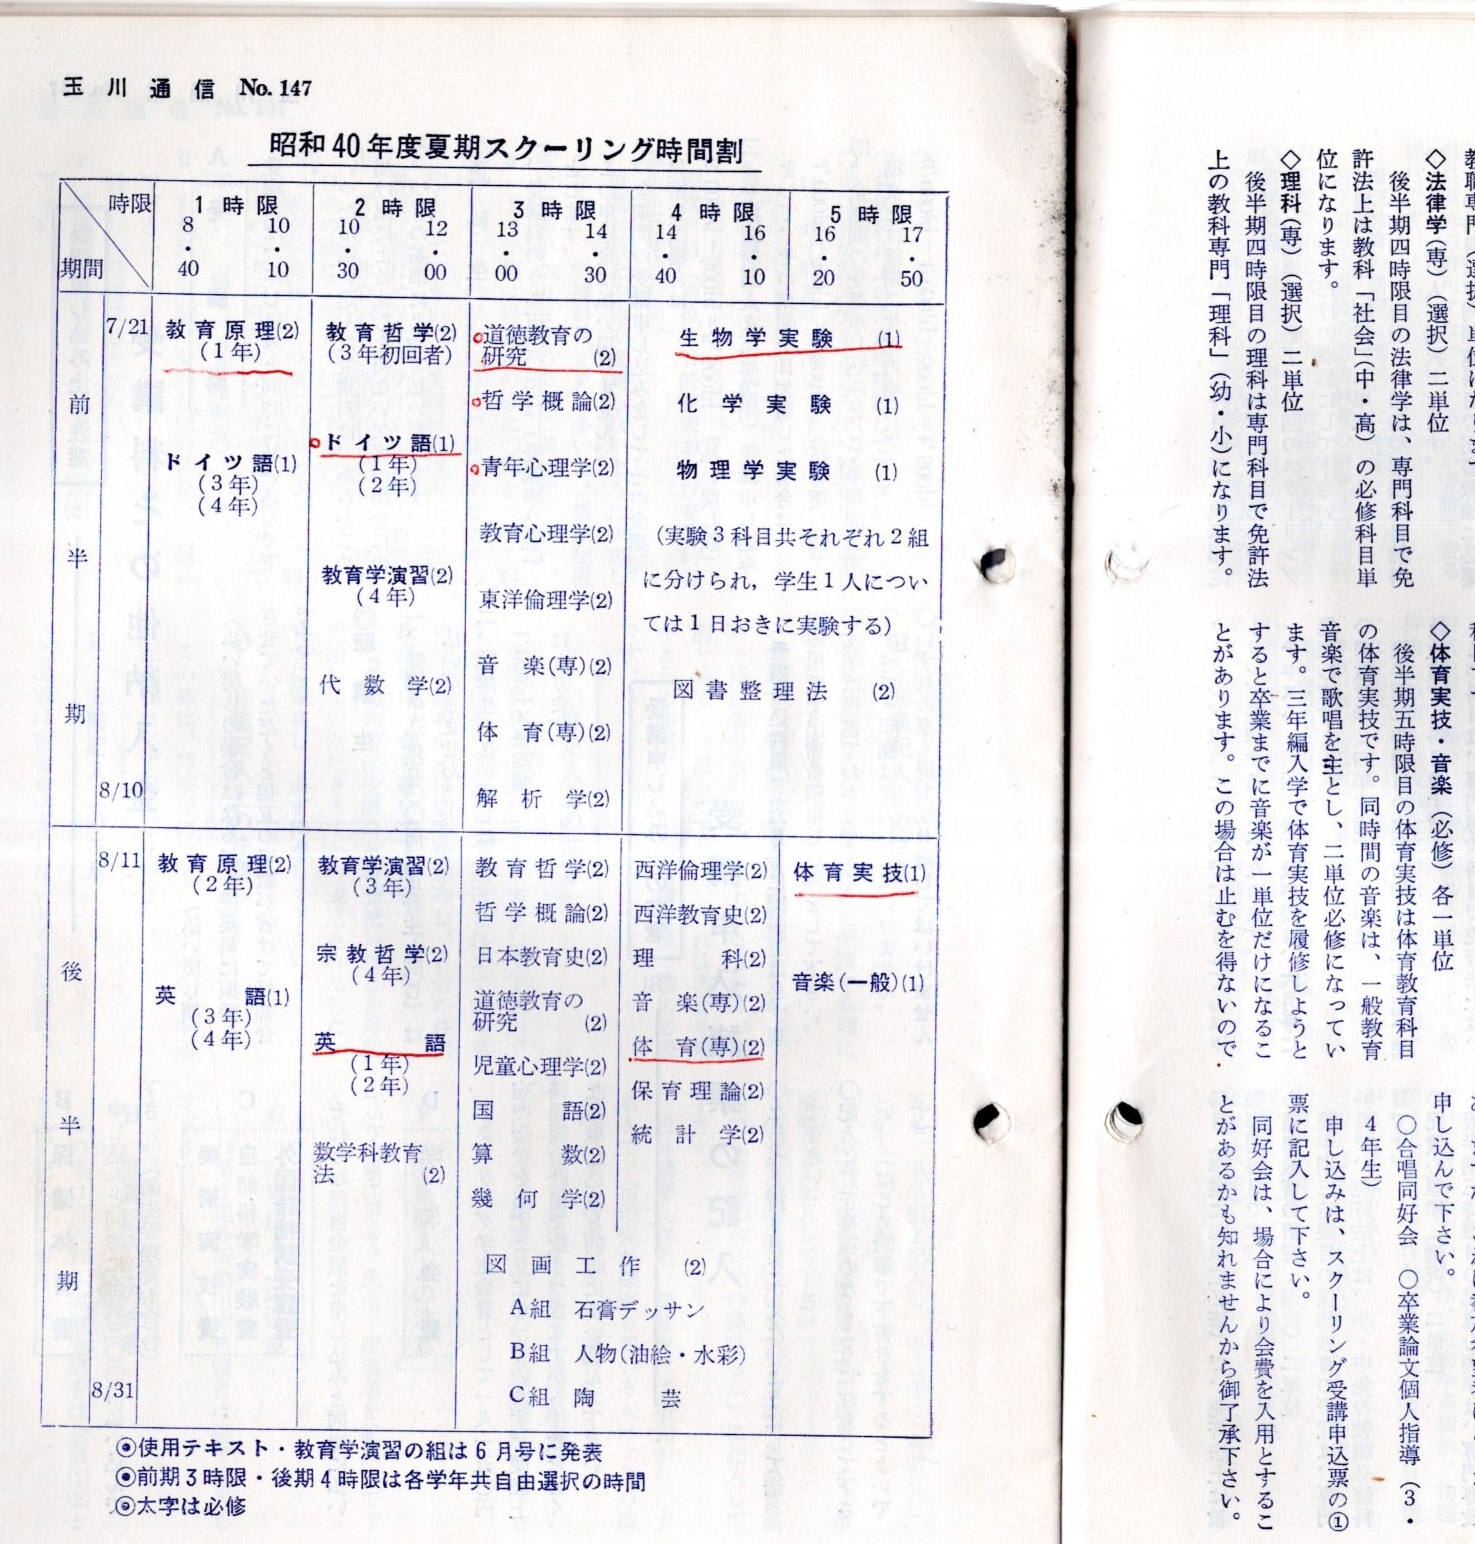 玉川通信 No. 147
昭和40年度夏期スクーリング時間割
時限
期間
1時限
8・40 10・10
2時限
10・30 12・00
3時限
13・00 14・30
4時限
14・40 16・10
5時限
16・20 17・50
前半期
7/21
8/10
教育原理(2)
(1年)
ドイツ語(1)
(3年)
(4年)
教育哲学(2)
(3年初回者)
ドイツ語(1)
(1年)
(2年)
教育学演習(2)
(4年)
代数学(2)
道徳教育の
研究 (2)
哲学概論(2)
青年心理学(2)
教育心理学(2)
東洋倫理学(2)
音楽(専)(2)
体育(専)(2)
解析学(2)
生物学実験 (1)
化学実験 (1)
物理学実験 (1)
(実験3科目共それぞれ2組
に分けられ,学生1人につい
ては1日おきに実験する)
図書整理法 (2)
後半期
8/11
8/31
教育原理(2)
(2年)
英語(1)
(3年)
(4年)
教育学演習(2)
(3年)
宗教哲学(2)
(4年)
英語
(1年)
(2年)
数学科教育
法 (2)
教育哲学(2)
哲学概論(2)
日本教育史(2)
道徳教育の
研究 (2)
児童心理学(2)
国語(2)
算数(2)
幾何学(2)
西洋倫理学(2)
西洋教育史(2)
理科(2)
音楽(専)(2)
体育(専)(2)
保育理論(2)
統計学(2)
体育実技(1)
音楽(一般)(1)
図画工作 (2)
A組 石膏デッサン
B組 人物(油絵・水彩)
C組 陶芸
◉使用テキスト・教育学演習の組は6月号に発表
◉前期3時限・後期4時限は各学年共自由選択の時間
◉太字は必修
◇法律学(専)(選択)二単位
後半期四時限目の法律学は、専門科目で免
許法上は教科「社会」(中・高)の必修科目単
位になります。
◇理科(専)(選択)二単位
後半期四時限目の理科は専門科目で免許法
上の教科専門「理科」(幼・小)になります。
◇体育実技・音楽(必修)各一単位
後半期五時限目の体育実技は体育教育科目
の体育実技です。同時間の音楽は、一般教育
音楽で歌唱を主とし、二単位必修になってい
ます。三年編入学で体育実技を履修しようと
すると卒業までに音楽が一単位だけになるこ
とがあります。この場合は止むを得ないので
申し込んで下さい。
〇合唱同好会 〇卒業論文個人指導(3・
4年生)
申し込みは、スクーリング受講申込票の①
票に記入して下さい。
同好会は、場合により会費を入用とするこ
とがあるかも知れませんから御了承下さい。